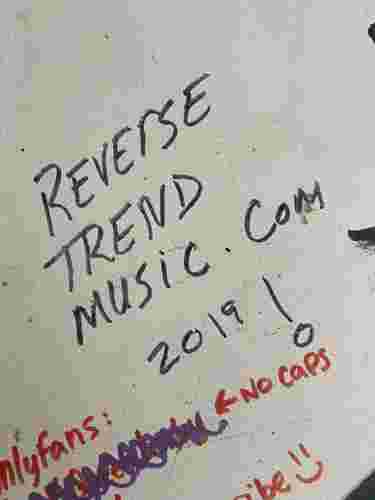 REVERSE
TREND
MUSIC.COM
2019!
nlyfans:
← NO CAPS
ibe!!